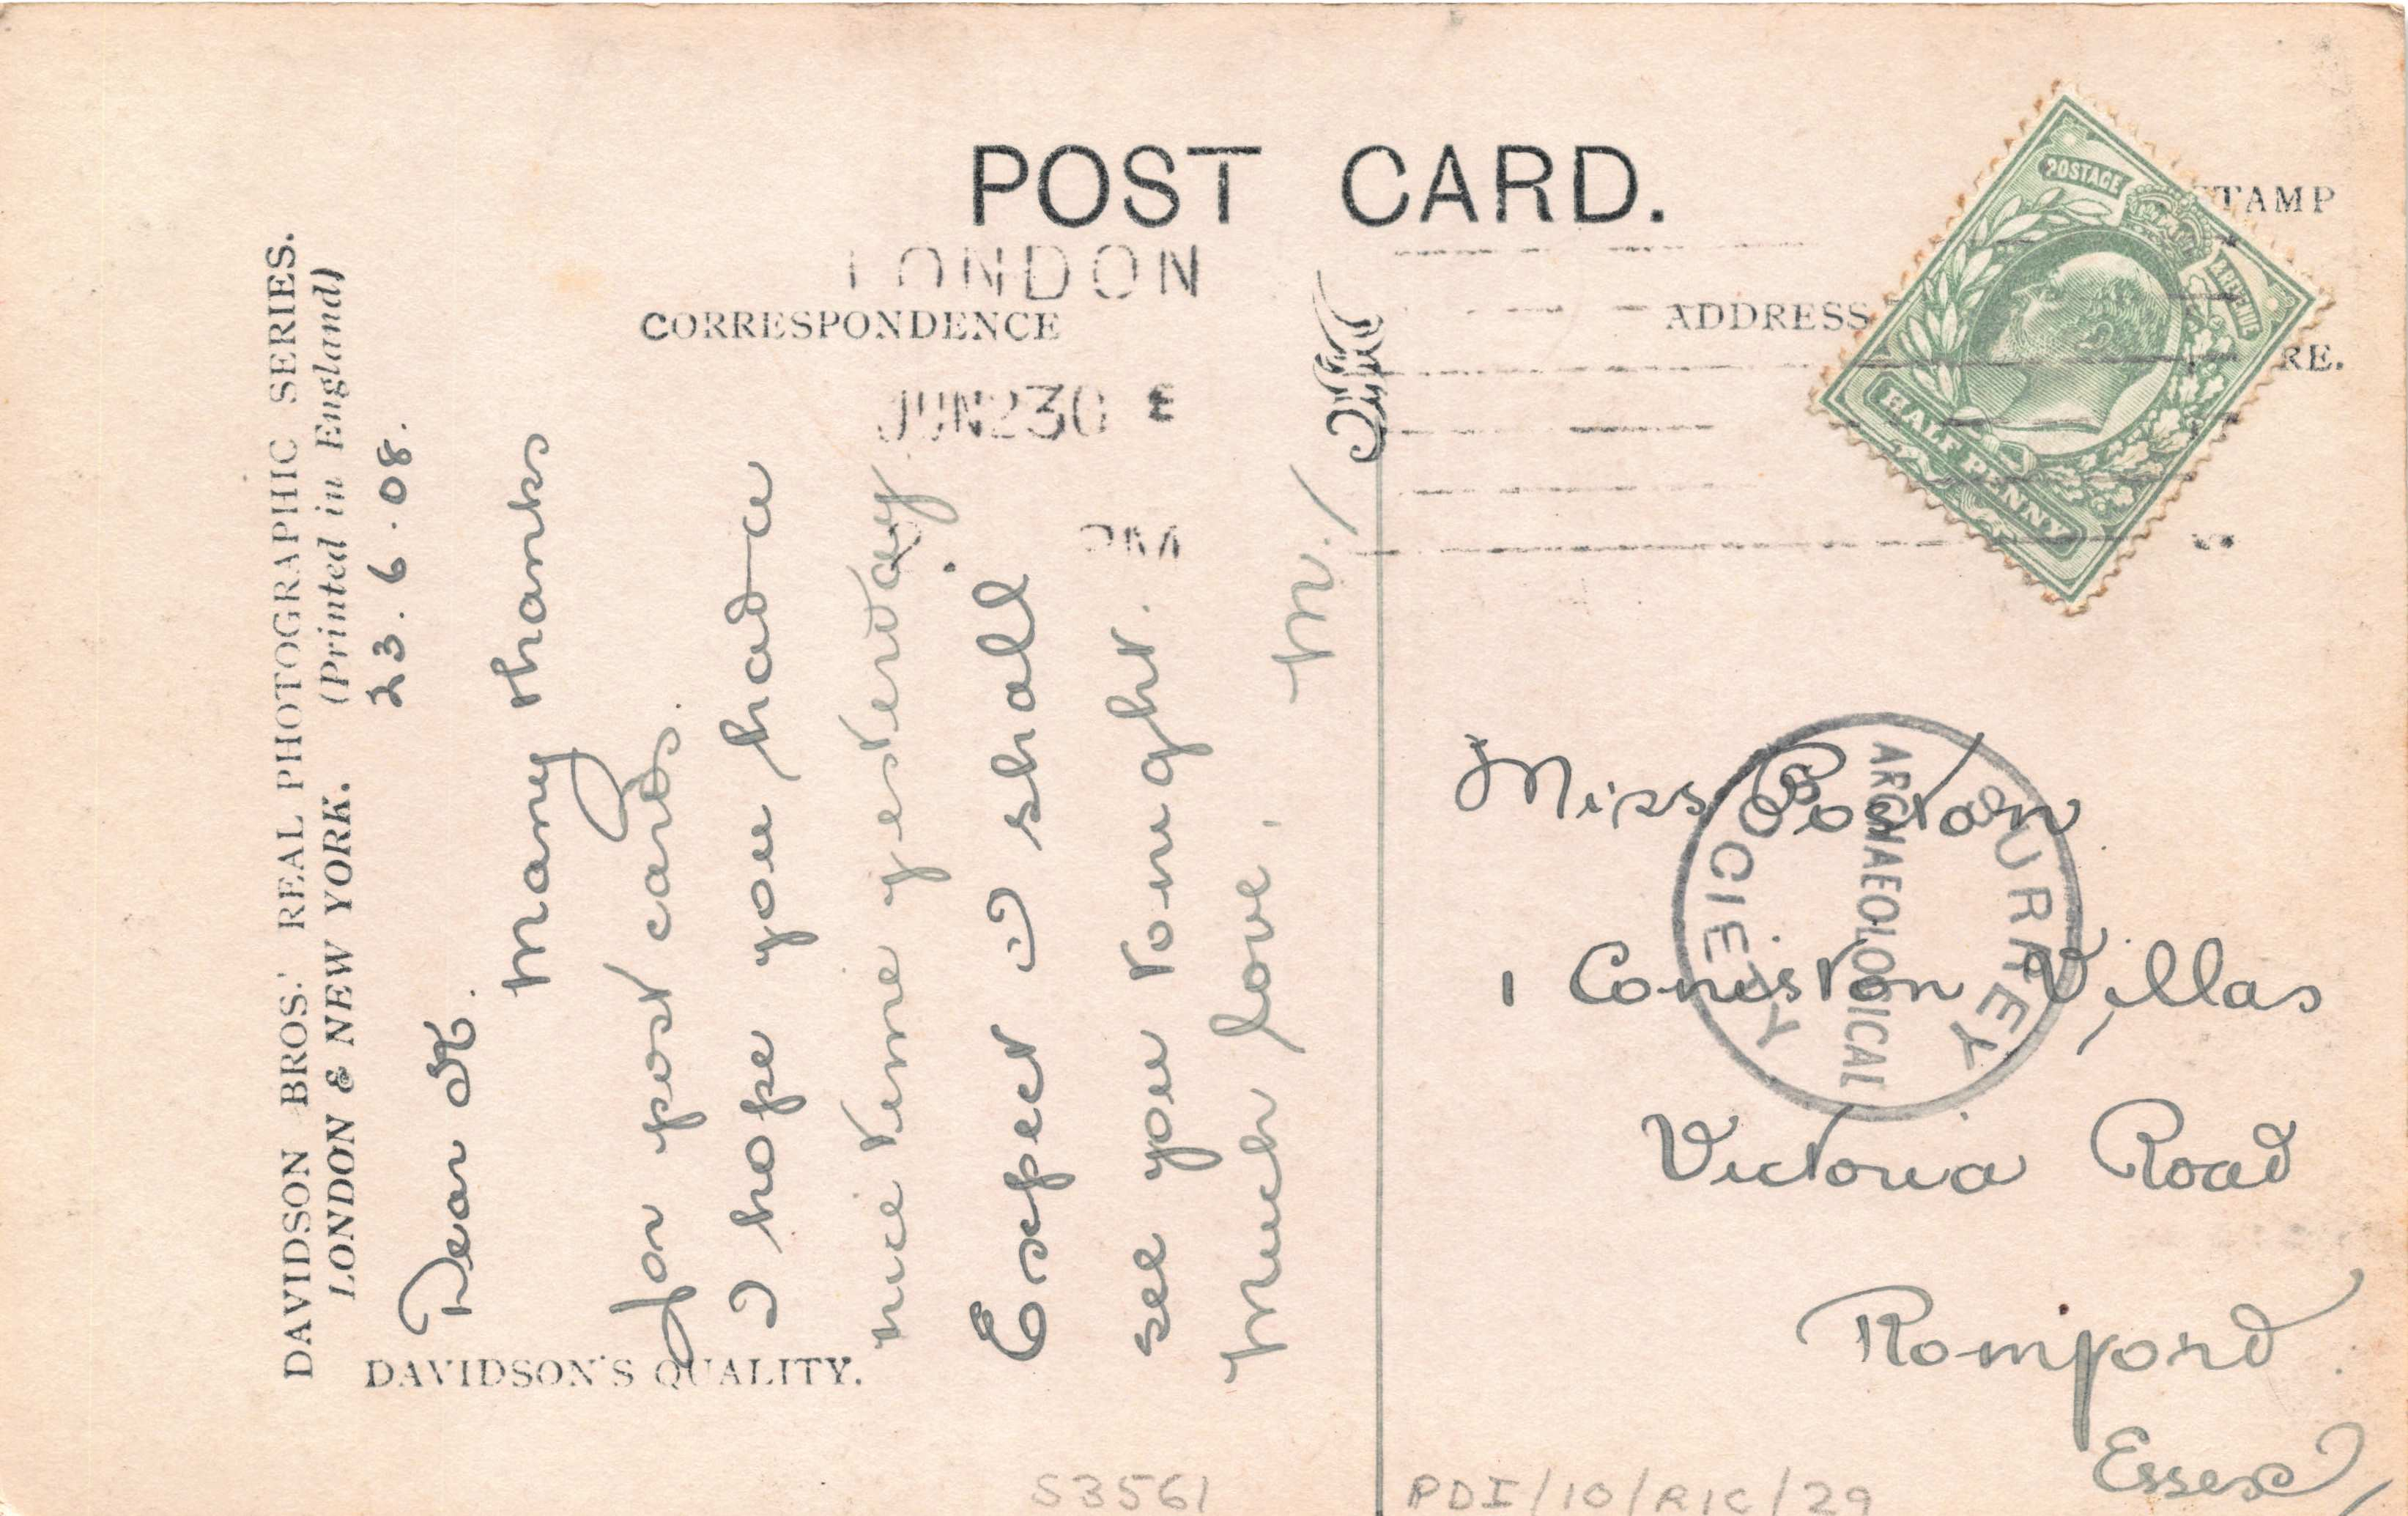 POST CARD.
LONDON
CORRESPONDENCE
JUN 23 08
PM
ADDRESS
TAMP
RE.
POSTAGE
& REVENUE
HALF PENNY
DAVIDSON BROS.' REAL PHOTOGRAPHIC SERIES.
LONDON & NEW YORK. (Printed in England)
DAVIDSON'S QUALITY.
23.6.08.
Dear
Many thanks
for post cards.
I hope you had a
nice time yesterday.
Expect I shall
see you tonight.
Much love.
M.
Miss
1 Coniston Villas
Victoria Road
Romford
Essex
SURREY
ARCHAEOLOGICAL
SOCIETY
S3561
PDI/10/RIC/29